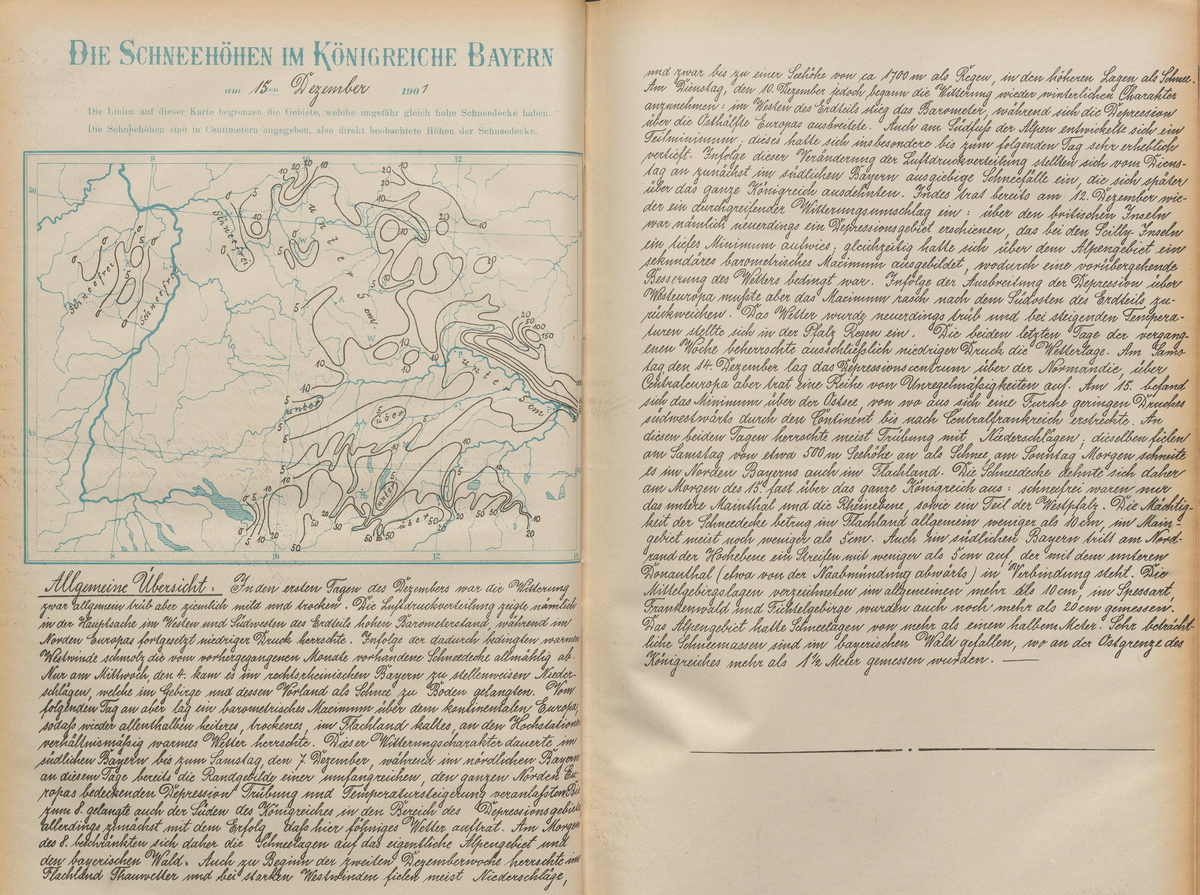 DIE SCHNEEHÖHEN IM KÖNIGREICHE BAYERN
am 15ten Dezember 1901
Die Linien auf dieser Karte begrenzen die Gebiete, welche ungefähr gleich hohe Schneedecke haben.
Die Schneehöhen sind in Centimetern angegeben, also direkt beobachtete Höhen der Schneedecke.
Schneefrei
Schneefrei
Schneefrei
unter
5 cm
unter
5 cm
unter
5
5
über
unter
über
50
Allgemeine Übersicht. In den ersten Tagen des Dezembers war die Witterung
zwar allgemein trüb aber ziemlich mild und trocken. Die Luftdruckverteilung zeigte nämlich
in der Hauptsache im Westen und Südwesten des Erdteils hohen Barometerstand, während im
Norden Europas fortgesetzt niedriger Druck herrschte. Infolge der dadurch bedingten warmen
Westwinde schmolz die vom vorhergegangenen Monate vorhandene Schneedecke allmählig ab.
Nur am Mittwoch, den 4. kam es im rechtsrheinischen Bayern zu stellenweisen Nieder-
schlägen, welche im Gebirge und dessen Vorland als Schnee zu Boden gelangten. Vom
folgenden Tag an aber lag ein barometrisches Maximum über dem kontinentalen Europa,
sodaß wieder allenthalben heiteres, trockenes, im Flachland kaltes, an den Hochstationen
verhältnismäßig warmes Wetter herrschte. Dieser Witterungscharakter dauerte im
südlichen Bayern bis zum Samstag, den 7. Dezember, während im nördlichen Bayern
an diesem Tage bereits die Randgebilde einer umfangreichen, den ganzen Norden Eu-
ropas bedeckenden Depression Trübung und Temperatursteigerung veranlaßten. Bis
zum 8. gelangte auch der Süden des Königreiches in den Bereich des Depressionsgebiets
allerdings zunächst mit dem Erfolg daß hier föhniges Wetter auftrat. Am Morgen
des 8. beschränkten sich daher die Schneelagen auf das eigentliche Alpengebiet und
den bayerischen Wald. Auch zu Beginn der zweiten Dezemberwoche herrschte im
Flachland Thauwetter und bei starken Westwinden fielen meist Niederschläge,
und zwar bis zu einer Seehöhe von ca 1700 m als Regen, in den höheren Lagen als Schnee.
Am Dienstag, den 10. Dezember jedoch begann die Witterung wieder winterlichen Charakter
anzunehmen: im Westen des Erdteils stieg das Barometer, während sich die Depression
über die Osthälfte Europas ausbreitete. Auch am Südfuß der Alpen entwickelte sich ein
Teilminimum; dieses hatte sich insbesondere bis zum folgenden Tag sehr erheblich
vertieft. Infolge dieser Veränderung der Luftdruckverteilung stellten sich vom Diens-
tag an zunächst im südlichen Bayern ausgiebige Schneefälle ein, die sich später
über das ganze Königreich ausdehnten. Indes trat bereits am 12. Dezember wie-
der ein durchgreifender Witterungsumschlag ein: über den britischen Inseln
war nämlich neuerdings ein Depressionsgebiet erschienen, das bei den Scilly Inseln
ein tiefes Minimum aufwies; gleichzeitig hatte sich über dem Alpengebiet ein
sekundäres barometrisches Maximum ausgebildet, wodurch eine vorübergehende
Besserung des Wetters bedingt war. Infolge der Ausbreitung der Depression über
Westeuropa mußte aber das Maximum rasch nach dem Südosten des Erdteils zu-
rückweichen. Das Wetter wurde neuerdings trüb und bei steigenden Tempera-
turen stellte sich in der Pfalz Regen ein. Die beiden letzten Tage der vergang-
enen Woche beherrschte ausschließlich niedriger Druck die Wetterlage. Am Sams-
tag den 14. Dezember lag das Depressionscentrum über der Normandie, über
Centraleuropa aber trat eine Reihe von Unregelmäßigkeiten auf. Am 15. befand
sich das Minimum über der Ostsee, von wo aus sich eine Furche geringen Druckes
südwestwärts durch den Continent bis nach Centralfrankreich erstreckte. An
diesen beiden Tagen herrschte meist Trübung mit Niederschlägen; dieselben fielen
am Samstag von etwa 500 m Seehöhe an als Schnee, am Sonntag Morgen schneite
es im Norden Bayerns auch im Flachland. Die Schneedecke dehnte sich daher
am Morgen des 15. fast über das ganze Königreich aus: schneefrei waren nur
das untere Mainthal und die Rheinebene, sowie ein Teil der Westpfalz. Die Mächtig-
keit der Schneedecke betrug im Flachland allgemein weniger als 10 cm, im Main-
gebiet meist noch weniger als 5 cm. Auch im südlichen Bayern tritt am Nord-
rand der Hochebene ein Streifen mit weniger als 5 cm auf, der mit dem unteren
Donauthal (etwa von der Naabmündung abwärts) in Verbindung steht. Die
Mittelgebirgslagen verzeichneten im allgemeinen mehr als 10 cm, im Spessart,
Frankenwald und Fichtelgebirge wurden auch noch mehr als 20 cm gemessen.
Das Alpengebiet hatte Schneelagen von mehr als einen halben Meter. Sehr beträcht-
liche Schneemassen sind im bayerischen Wald gefallen, wo an der Ostgrenze des
Königreiches mehr als 1½ Meter gemessen wurden. —